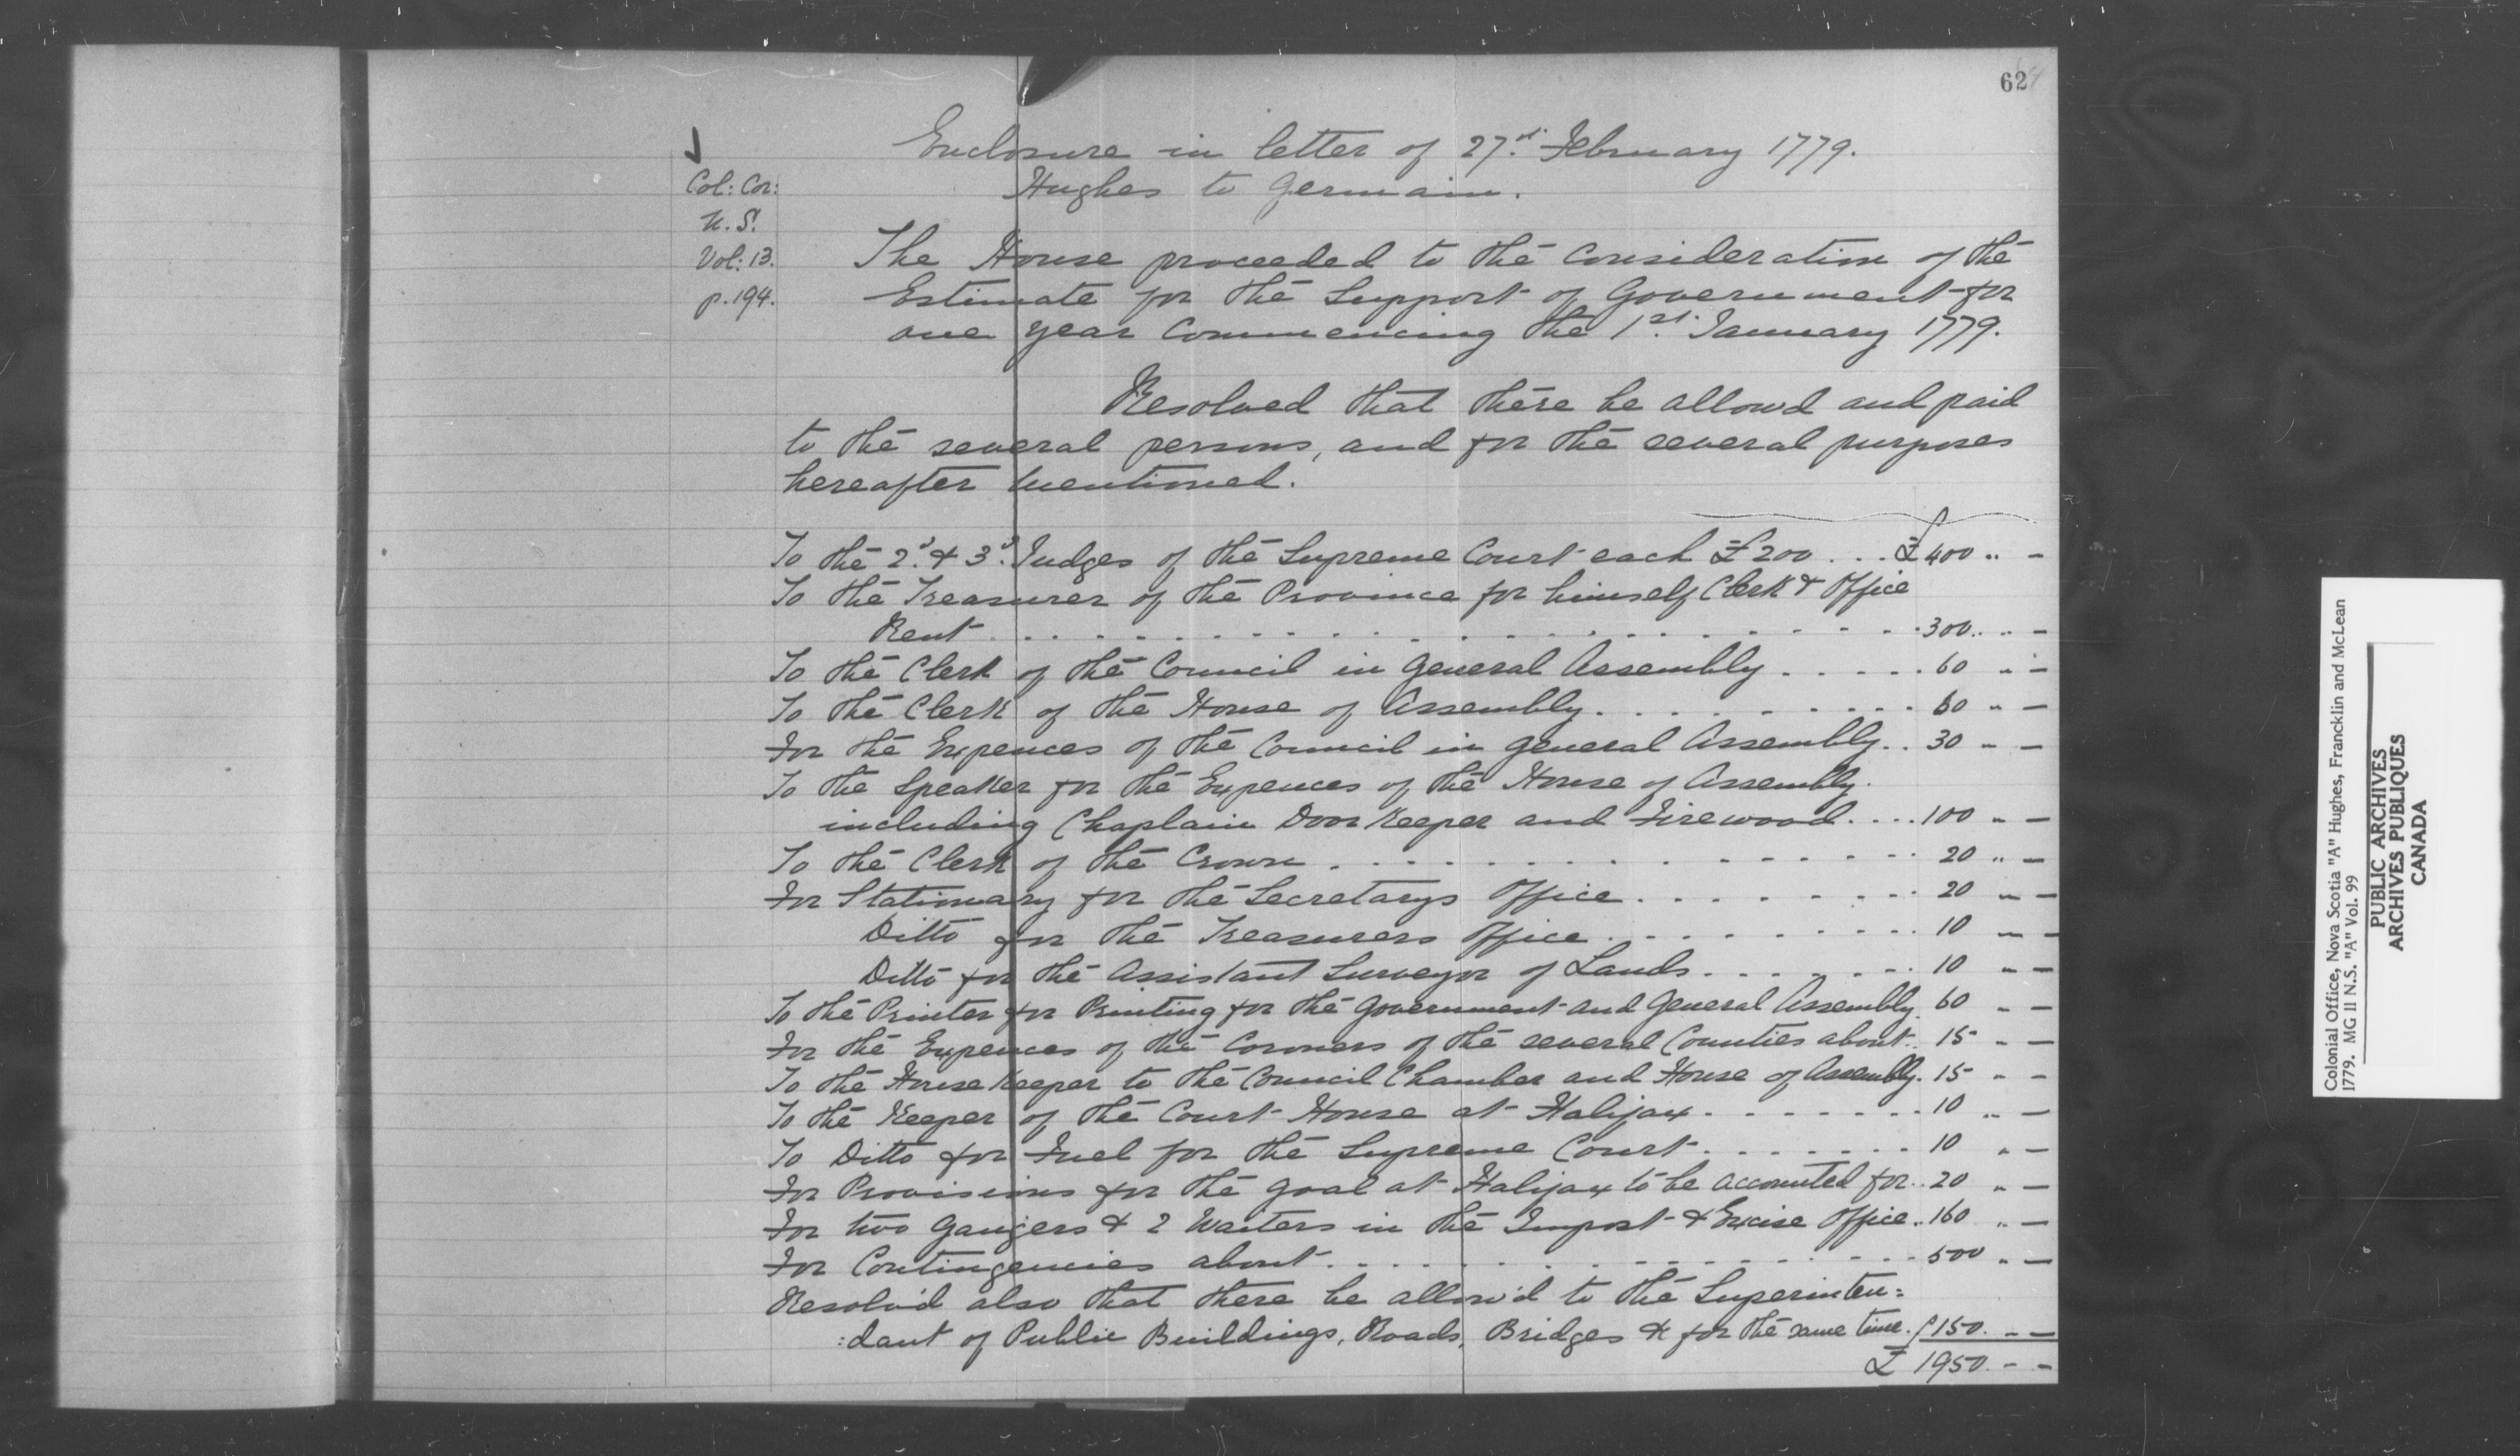 62
Enclosure in letter of 27.st February 1779.
Hughes to Germain.
Col: Cor:
N. S.
Vol: 13.
p. 194.
The House proceeded to the consideration of the
Estimate for the Support of Government for
one year commencing the 1st. January 1779.
Resolved that there be allowd and paid
to the several persons, and for the several purposes
hereafter mentioned.
To the 2.d & 3.d Judges of the Supreme Court each £200 ... £400 .. -
To the Treasurer of the Province for himself Clerk & Office
Rent . . . . . . . . . . 300 .. -
To the Clerk of the Council in General Assembly . . . . . 60 .. -
To the Clerk of the House of Assembly . . . . . . . . 60 .. -
For the Expences of the Council in general Assembly . . 30 .. -
To the Speaker for the Expences of the House of Assembly.
including Chaplain Door Keeper and Firewood . . . . 100 .. -
To the Clerk of the Crown . . . . . . . . . . 20 .. -
For Stationary for the Secretarys Office . . . . . . . . 20 .. -
Ditto for the Treasurers Office . . . . . . . . . 10 .. -
Ditto for the Assistant Surveyor of Lands . . . . . . . 10 .. -
To the Printer for Printing for the Government and General Assembly. 60 .. -
For the Expences of the Coroners of the several Counties about . . 15 .. -
To the House Keeper to the Council Chamber and House of Assembly. 15 .. -
To the Keeper of the Court House at Halifax . . . . . . . . 10 .. -
To Ditto for Fuel for the Supreme Court . . . . . . . 10 .. -
For Provisions for the goal at Halifax to be accounted for . . 20 .. -
For two Gaugers & 2 Waiters in the Impost & Excise Office . . 160 .. -
For Contingencies about . . . . . . . . . . 500 .. -
Resolv'd also that there be allow'd to the Superinten:
:dant of Public Buildings, Roads, Bridges & for the same time. £150 .. -
£ 1950 .. -
Colonial Office, Nova Scotia "A" Hughes, Francklin and McLean
1779. MG II N.S. "A" Vol. 99
PUBLIC ARCHIVES
ARCHIVES PUBLIQUES
CANADA